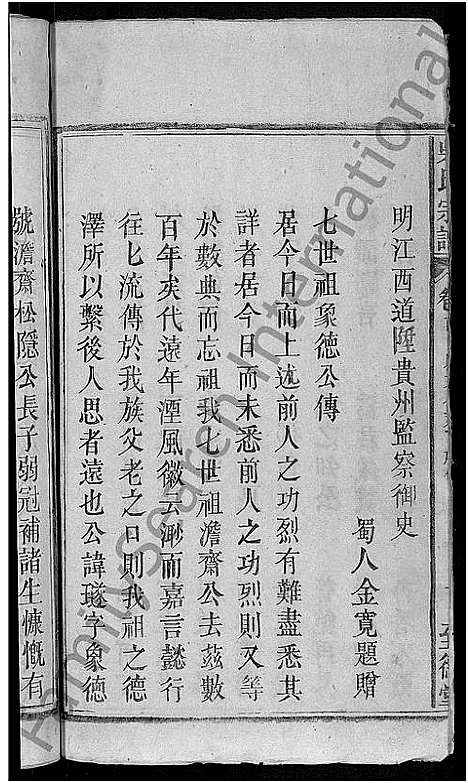 吳氏宗譜
明江西道陞貴州監察御史
蜀人金寬題贈
七世祖象德公傳
居今日而上述前人之功烈有難盡悉其
詳者居今日而未悉前人之功烈則又等
於數典而忘祖我七世祖澹齋公去茲數
百年矣代遠年湮風徽云渺而嘉言懿行
往匕流傳於我族父老之口則我祖之德
澤所以繫後人思者遠也公諱璲字象德
號澹齋松隱公長子弱冠補諸生慷慨有
FamilySearch International